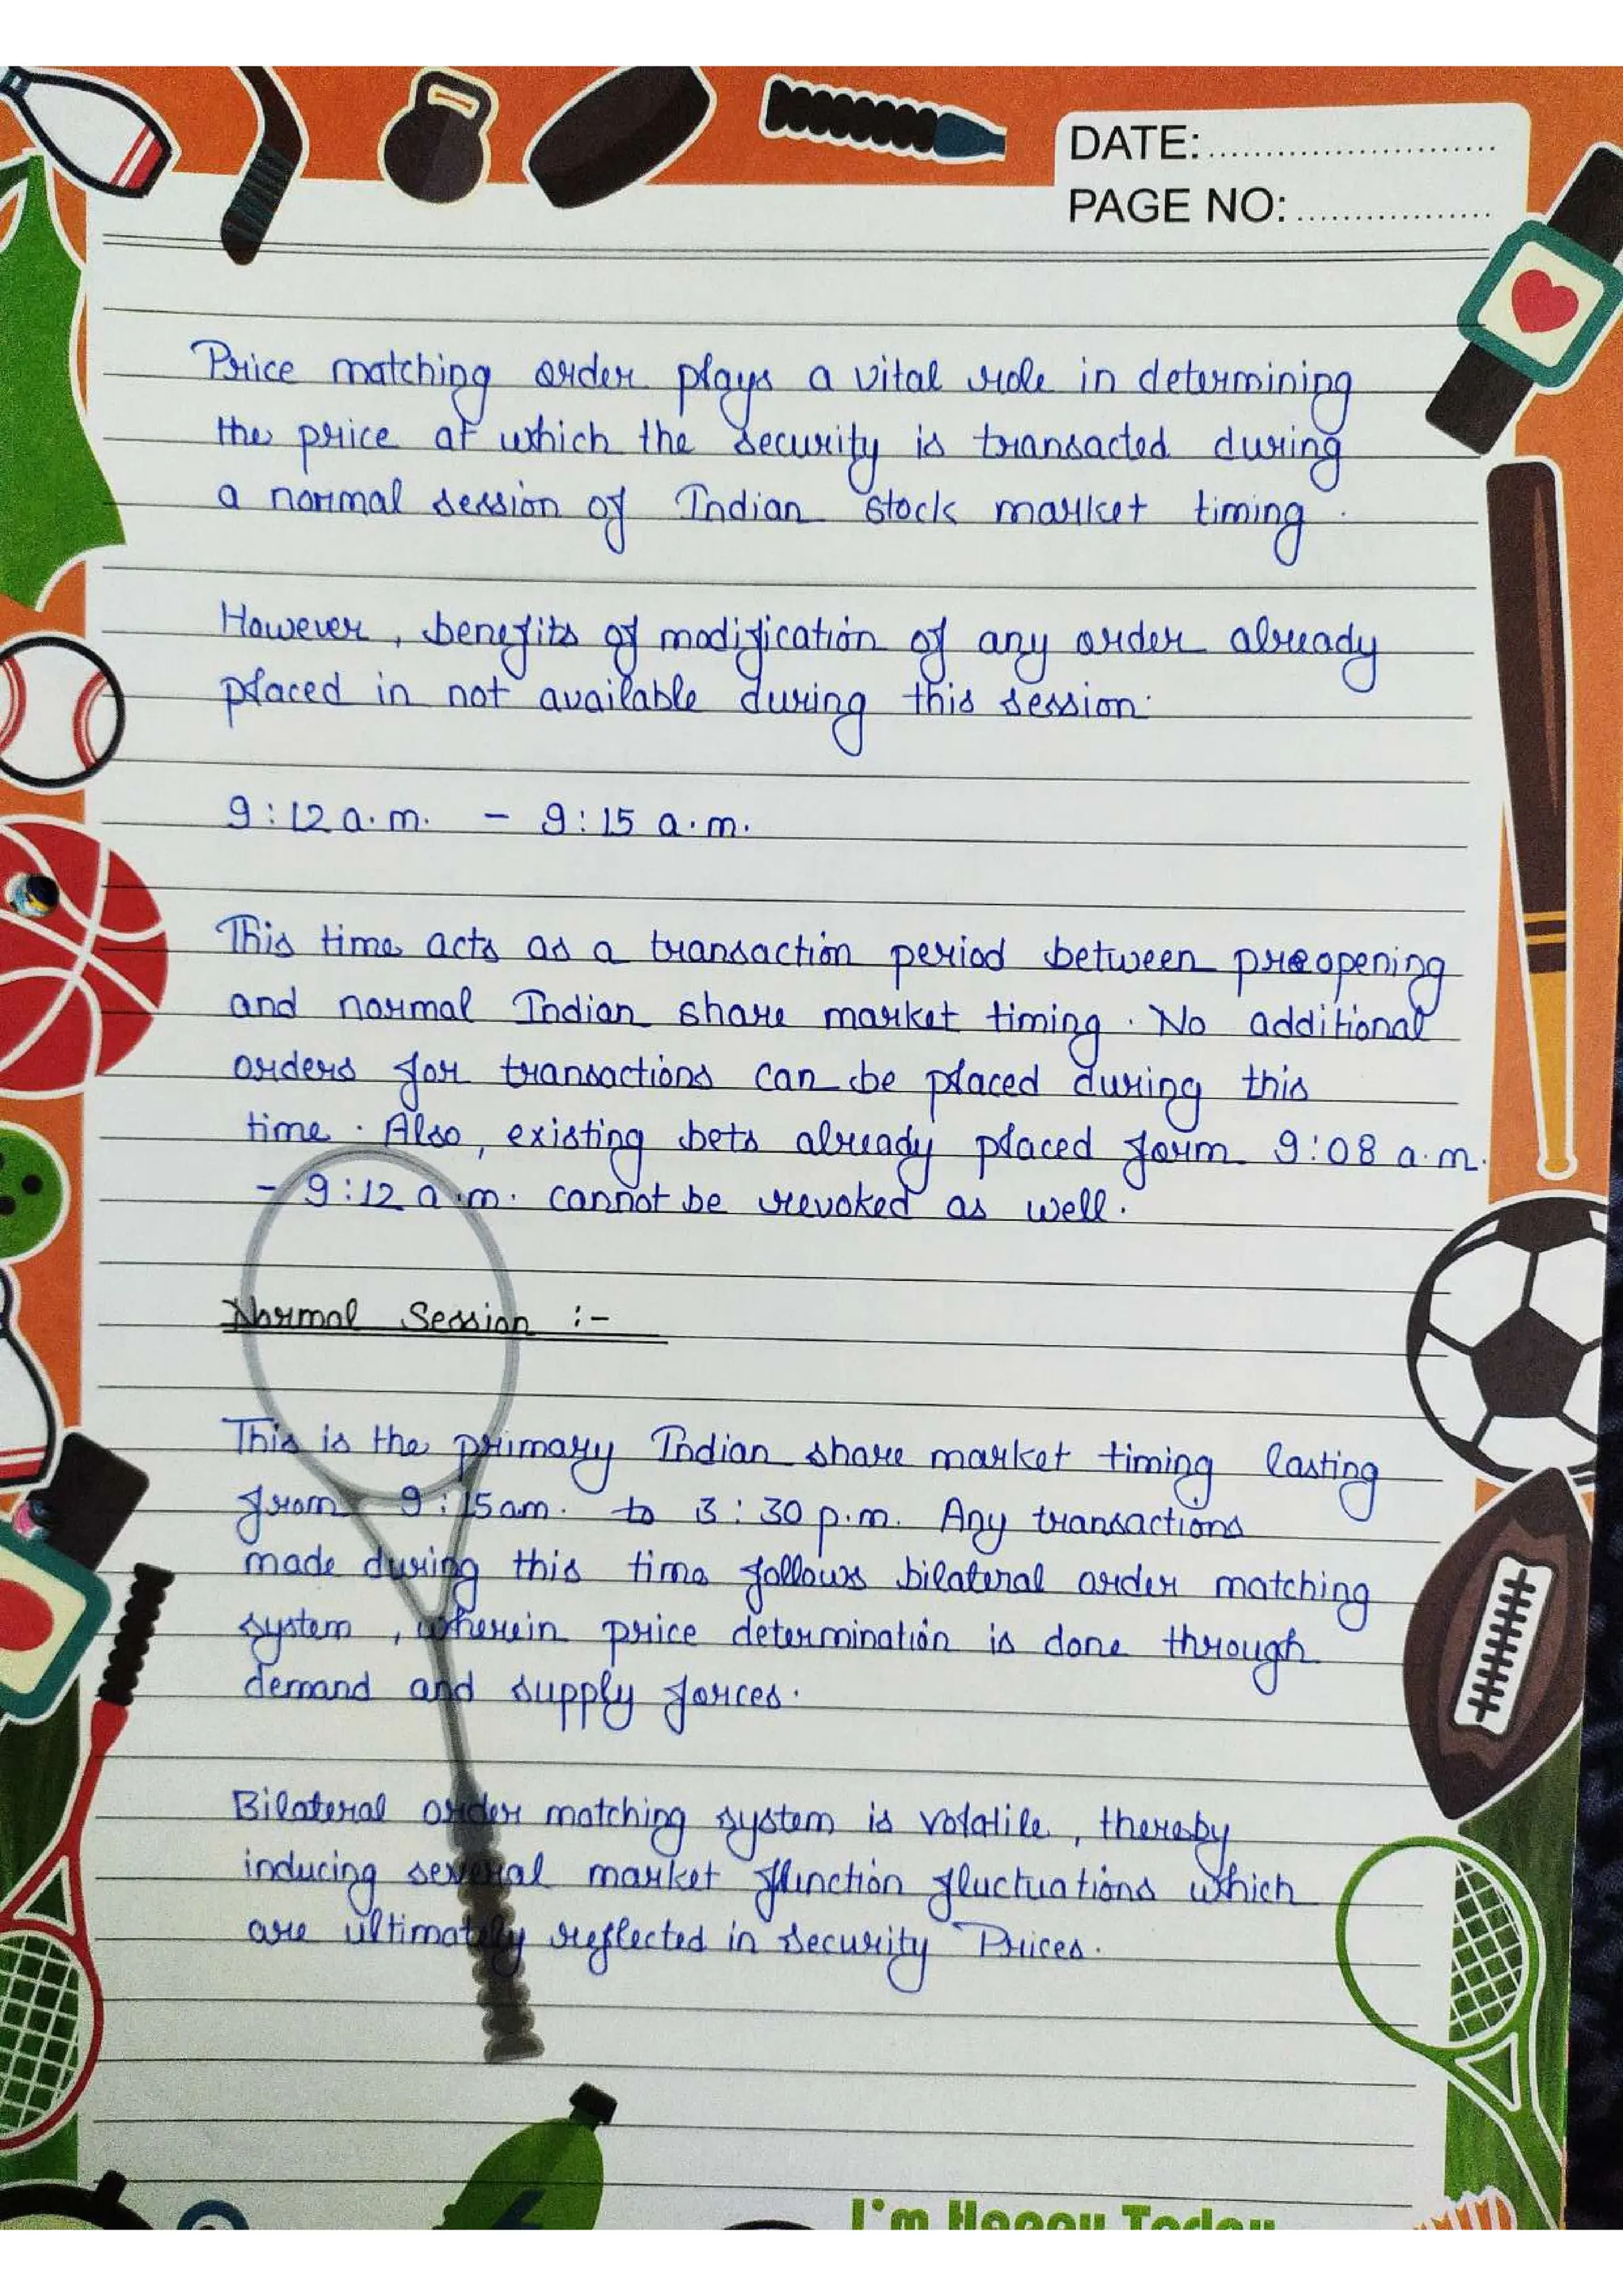 DATE:
PAGE NO:
Price matching order plays a vital role in determining
the price at which the security is transacted during
a normal session of Indian stock market timing.
However, benefits of modification of any order already
placed in not available during this session.
9:12 a.m. - 9:15 a.m.
This time acts as a transaction period between preopening
and normal Indian share market timing. No additional
orders for transactions can be placed during this
time. Also, existing bets already placed form 9:08 a.m.
- 9:12 a.m. cannot be revoked as well.
Normal Session :-
This is the primary Indian share market timing lasting
from 9:15am. to 3:30 p.m. Any transactions
made during this time follows bilateral order matching
system, wherein price determination is done through
demand and supply forces.
Bilateral order matching system is volatile, thereby
inducing several market function fluctuations which
are ultimately reflected in security Prices.
I'm Happy Today